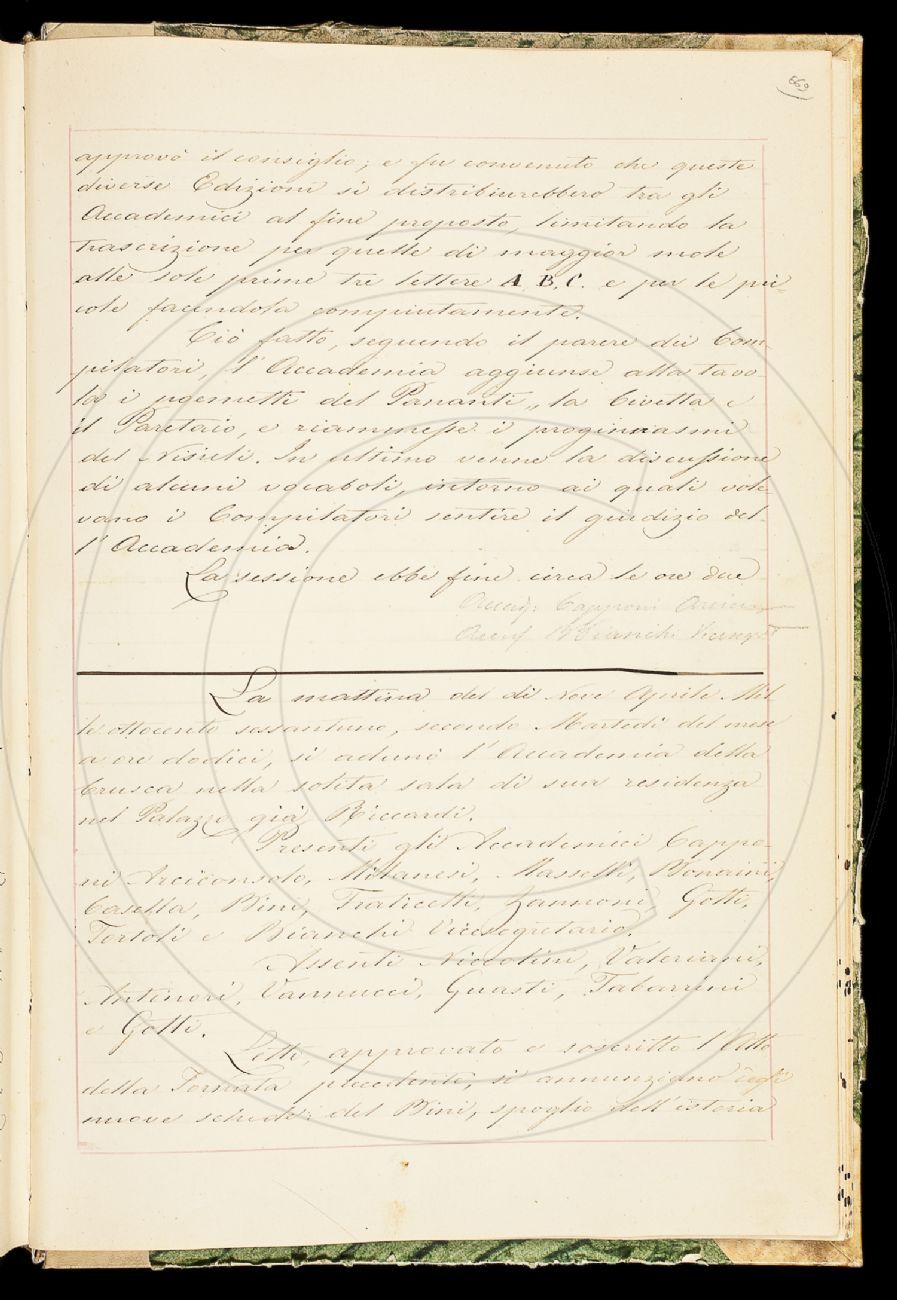 669
approvò il consiglio; e fu convenuto che queste
diverse Edizioni si distribuirebbero tra gli
Accademici al fine proposto, limitando la
trascrizione per quelle di maggior mole
alle sole prime tre lettere A B, C. e per le pic-
cole facendola compiutamente.
Ciò fatto, seguendo il parere dei Com-
pilatori, l'Accademia aggiunse alla tavo-
la i poemetti del Pananti „ la Civetta e
il Paretaio, e riammesse i proginnasmi
del Nisieli. In ultimo venne la discussione
di alcuni vocaboli, intorno ai quali vole-
vano i Compilatori sentire il giudizio del-
l'Accademia.
La sessione ebbe fine circa le ore due
Capponi
Bianchi
La mattina del dì Nove Aprile Mil-
le ottocento sessantuno, secondo Martedì del mese
a ore dodici, si adunò l'Accademia della
Crusca nella solita sala di sua residenza
nel Palazzo già Riccardi.
Presenti gli Accademici Cappo-
ni Arciconsolo, Milanesi, Masselli, Bonaini,
Casella, Bini, Fraticelli, Zannoni, Gotti,
Tortoli e Bianchi Vicesegretario.
Assenti Niccolini, Valeriani,
Antinori, Vannucci, Guasti, Tabarrini
e Gotti.
Letto, approvato e soscritto l'Atto
della Tornata precedente, si annunziano
nuove schede: del Bini, spoglio dell'istoria